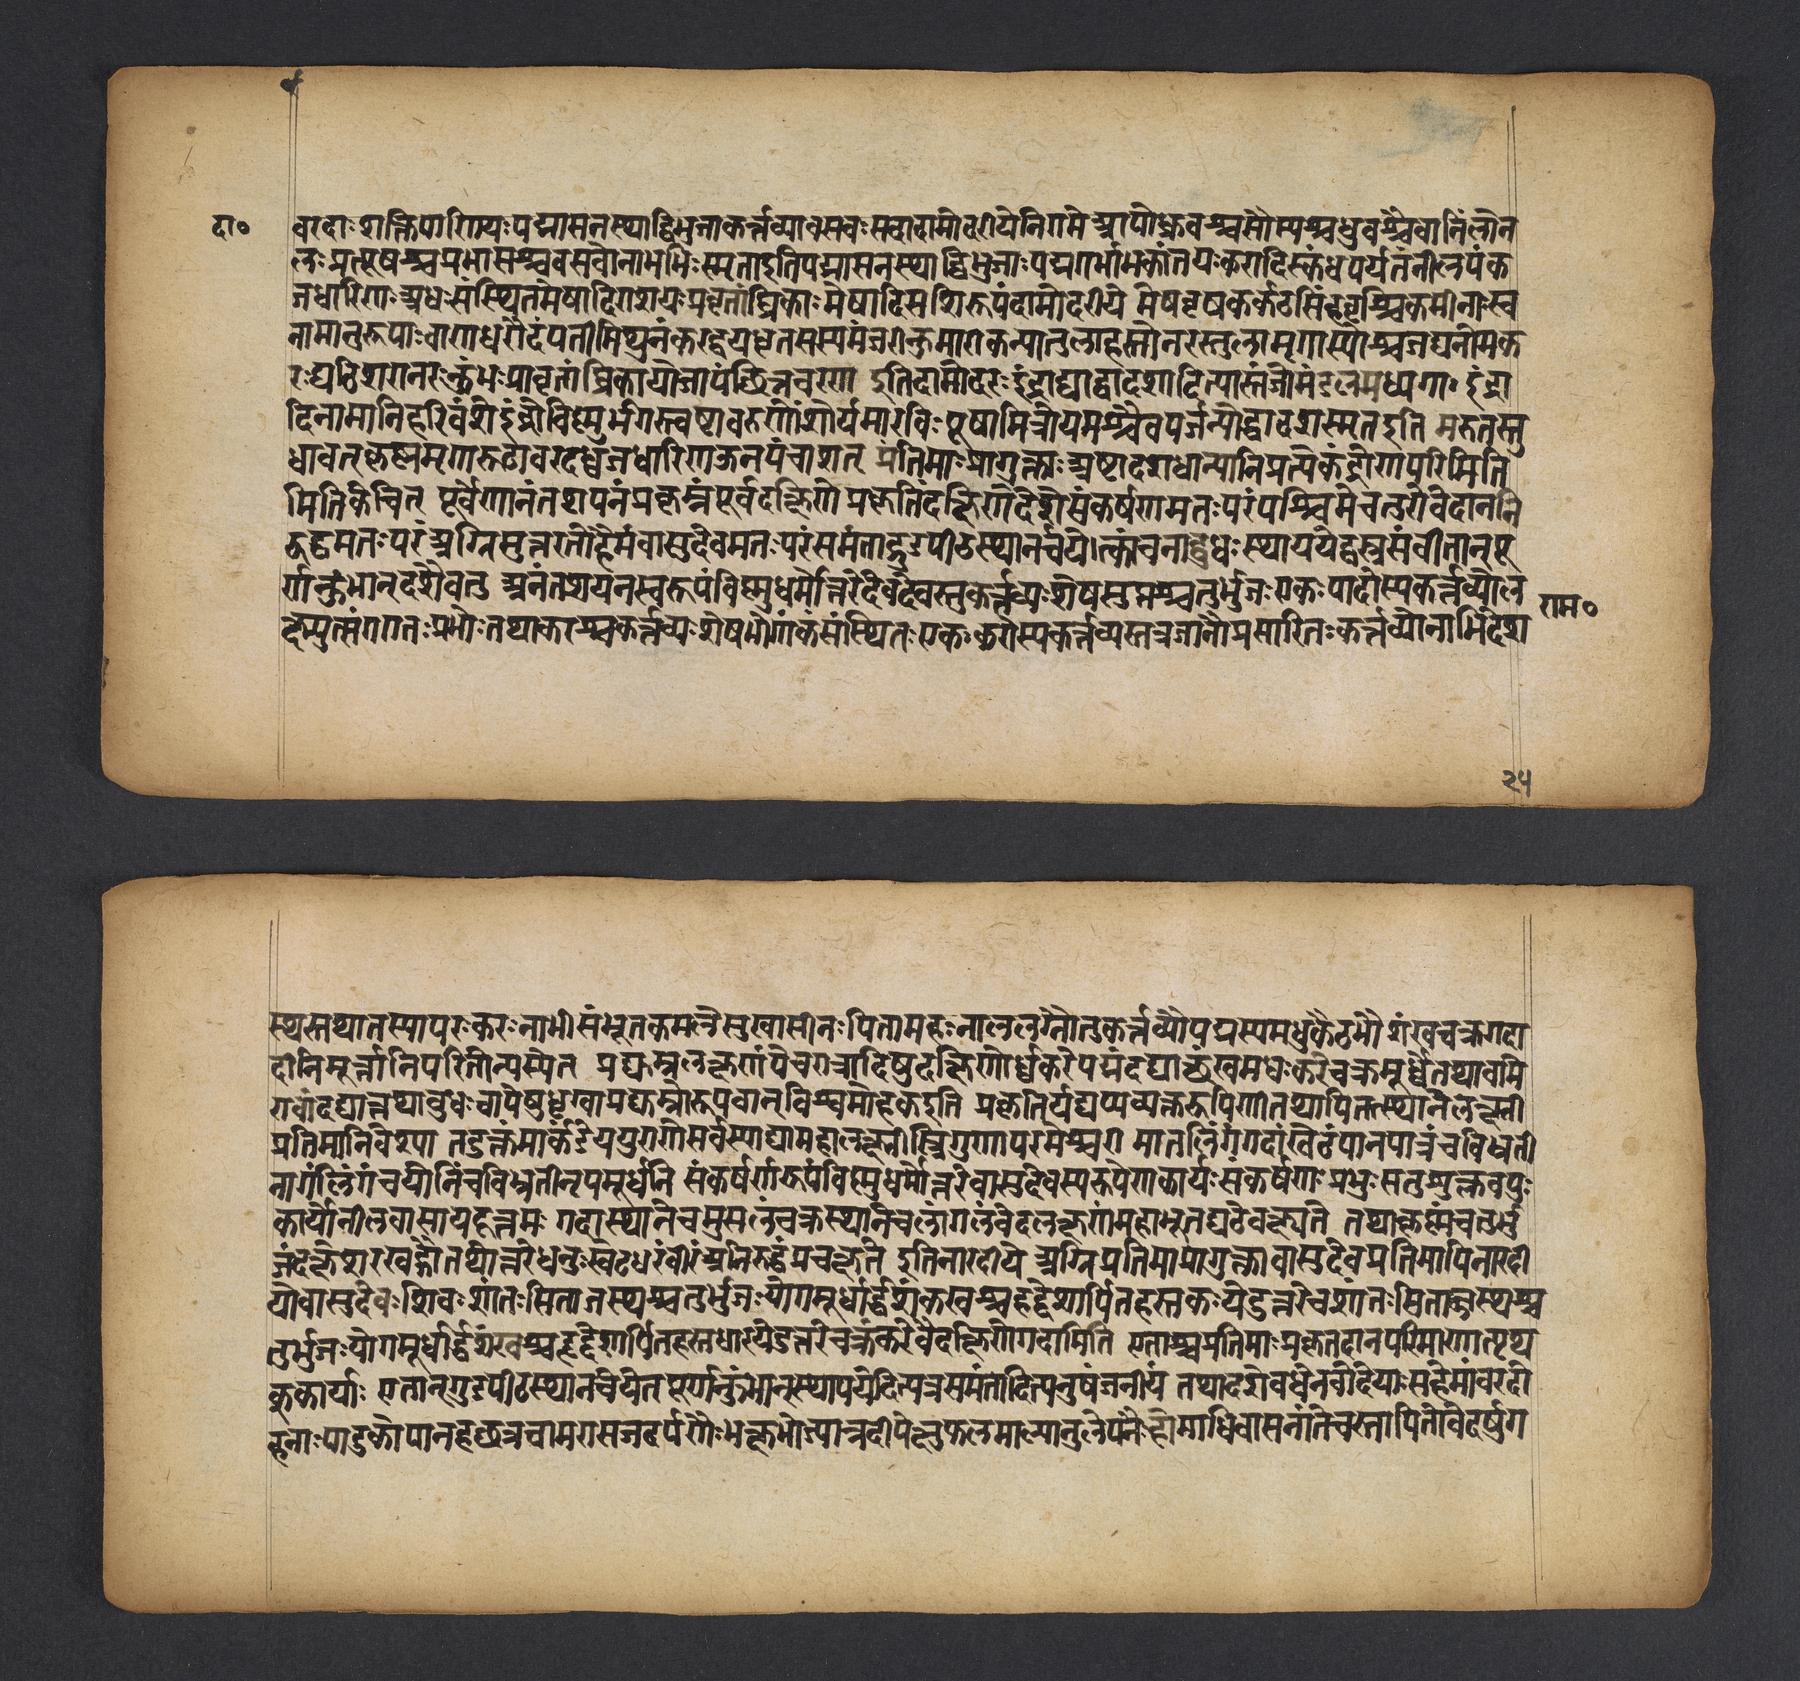 दा०
वरदाः शक्तिपाणयः पद्मासनस्थाद्विभुजाकर्त्तव्यावसवः सदादामोदरीयेनिगमे आपोध्रुवश्चसोम्यश्चधुवश्चैवानिलोन
लः प्रत्यूषश्चप्रभासश्चवसवोनामभिः स्मृताइतिपद्मासनस्थाद्विभुजाः पद्मगर्भांगकांतयः करादिस्कंधपर्यंतनीलपंक
जधारिणः अधः संस्थितमेषादिराशयः प्रावृतांघ्रिकाः मेषादिराशिरूपंदामोदरीये मेषवृषकर्कटसिंहवृश्चिकमीनाः स्व
नामानुरूपाः वीणाधरौदंपतीमिथुनंकरद्वयधृतसस्यमंजरीकुमारीकन्यातुलाहस्तोनरस्तुलामृगास्योश्वजघनोमक
रः घटशिरानरः कुंभः प्रावृतांघ्रिका योजापंछिन्नचरणा इतिदामोदरः इंद्राद्याद्वादशादित्यास्तेजोमंडलमध्यगाः इंद्रा
दिनामानिहरिवंशे इंद्रोविष्णुर्भगस्त्वष्टावरुणोंशोर्यमारविः पूषामित्रोयमश्चैवपर्जन्योद्वादशस्मृतइति मरुतस्तु
धावत्कृष्णमृगारूढावरदध्वजधारिणऊनपंचाशत् प्रतिमाः प्रागुक्ताः अष्टादशधान्यानिप्रत्येकंद्रोणपरिमिति
मितिकेचित् पूर्वेणानंतशयनंप्रद्युम्नंपूर्वदक्षिणे प्रकृतिंदक्षिणेदेशेसंकर्षणमतः परंपश्चिमेचतुरोवेदाननि
रुद्धमतः परंअग्निमुत्तरतोहैमंवासुदेवमतः परंसमंताद्गुडपीठस्थानर्चयेत्कांचनान्बुधः स्थापयेद्वस्त्रसंवीतान्पू
र्णकुंभान्दशैवतु अनंतशयनस्वरूपंविष्णुधर्मोत्तरेदेवदेवस्तुकर्त्तव्यः शेषसुप्तश्चतुर्भुजः एकः पादोस्यकर्त्तव्योल
क्ष्म्युत्संगगतः प्रभोः तथाकरश्चकर्त्तव्यः शेषभोगांकसंस्थितः एकः करोस्यकर्त्तव्यस्तत्रजानौप्रसारितः कर्त्तव्योनाभिदेश
राम०
२५
स्थस्तथातस्यापरः करः नाभीसंभूतकमलेसुखासीनः पितामहः नाललग्नौतुकर्त्तव्यौपद्मस्यमधुकैटभौ शंखचक्रगदा
दीनिमूर्त्तानिपरितोन्यस्येत् प्रद्युम्नलक्षणंपंचरात्रादिषुदक्षिणोर्ध्वकरेपद्मंदद्याच्छंखमधः करेचक्रमूर्ध्वेतथावामे
गदांदद्यात्तथाबुधः चापेषुधृग्वाप्रद्युम्नोरूपवान्विश्वमोहकइति प्रकृतिर्यद्यप्यव्यक्तरूपिणीतथापितत्स्थानेलक्ष्मी
प्रतिमानिवेश्या तदुक्तंमार्कंडेयपुराणेसर्वस्याद्यामहालक्ष्मीस्त्रिगुणापरमेश्वरी मातलिंगंगदांखेटंपानपात्रंचबिभ्रती
नागंलिंगंचयोनिंचबिभ्रतीनृपमूर्धनि संकर्षणरूपंविष्णुधर्मोत्तरेवासुदेवस्यरूपेणकार्यः संकर्षणः प्रभुः सतुशुक्लवपुः
कार्योनीलवासायदूत्तमः गदास्थानेचमुसलंचक्रस्थानेचलांगलंवेदलक्षणंमहाभूतघटेवक्ष्यते तथाकृष्णंचतुर्भु
जंदक्षेशरखड्गौतथोत्तरेधनुः खेटधरंवीरंअनिरुद्धंप्रचक्षते इतिनारदीये अग्निप्रतिमाप्रागुक्तावासुदेवप्रतिमापिनारदी
येवासुदेवः शिवः शांतः सिताजस्थश्चतुर्भुजः योगमूर्धोर्द्ध्वशंकखश्चहृद्देशार्पितहस्तकः येदुत्तरेचशांतः सिताब्जस्थश्च
तुर्भुजः योगमूर्धोर्द्ध्वशंखश्चहृद्देशार्पितहस्तधारयेदुत्तरेचक्रंकरेवैदक्षिणेगदामिति एताश्चप्रतिमाः प्रकृतदानपरिमाणात्पृथ
क्कार्याः एतान्गुडपीठस्थानर्चयेत् पूर्णकुंभान्स्थापयेदित्यत्रसमंतादित्यनुषंजनीयं तथादशैवधेनवोदेयाः सहेमांवरदो
हनाः पादुकोपानहछत्रचामरासनदर्पणैः भक्ष्यभोज्यान्नदीपेक्षुफलमाल्यानुलेपनैः होमाधिवासनांतेचस्नापितोवेदपुंग